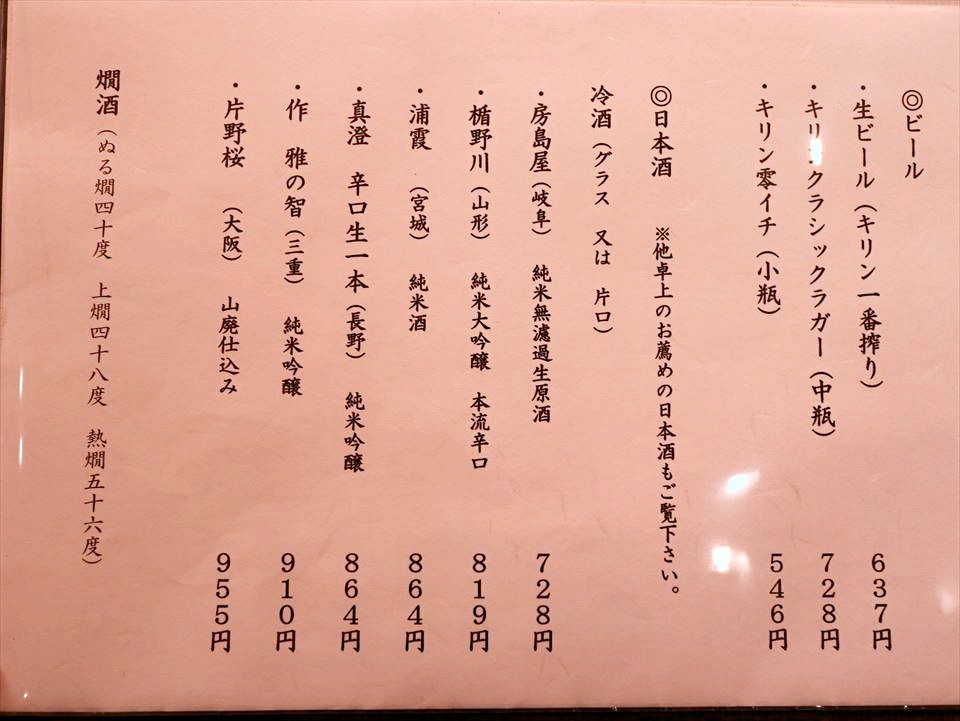 ◎ビール
・生ビール（キリン一番搾り） 637円
・キリンクラシックラガー（中瓶） 728円
・キリン零イチ（小瓶） 546円
◎日本酒 ※他卓上のお薦めの日本酒もご覧下さい。
冷酒（グラス 又は 片口）
・房島屋（岐阜） 純米無濾過生原酒 728円
・楯野川（山形） 純米大吟醸 本流辛口 819円
・浦霞（宮城） 純米酒 864円
・真澄 辛口生一本（長野） 純米吟醸 864円
・作 雅の智（三重） 純米吟醸 910円
・片野桜（大阪） 山廃仕込み 955円
燗酒（ぬる燗四十度 上燗四十八度 熱燗五十六度）